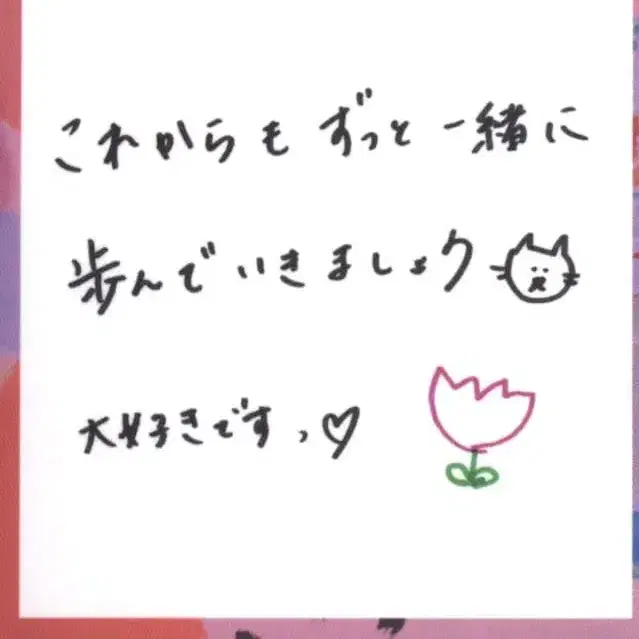 これからもずっと一緒に
歩んでいきましょう
大好きですっ♡